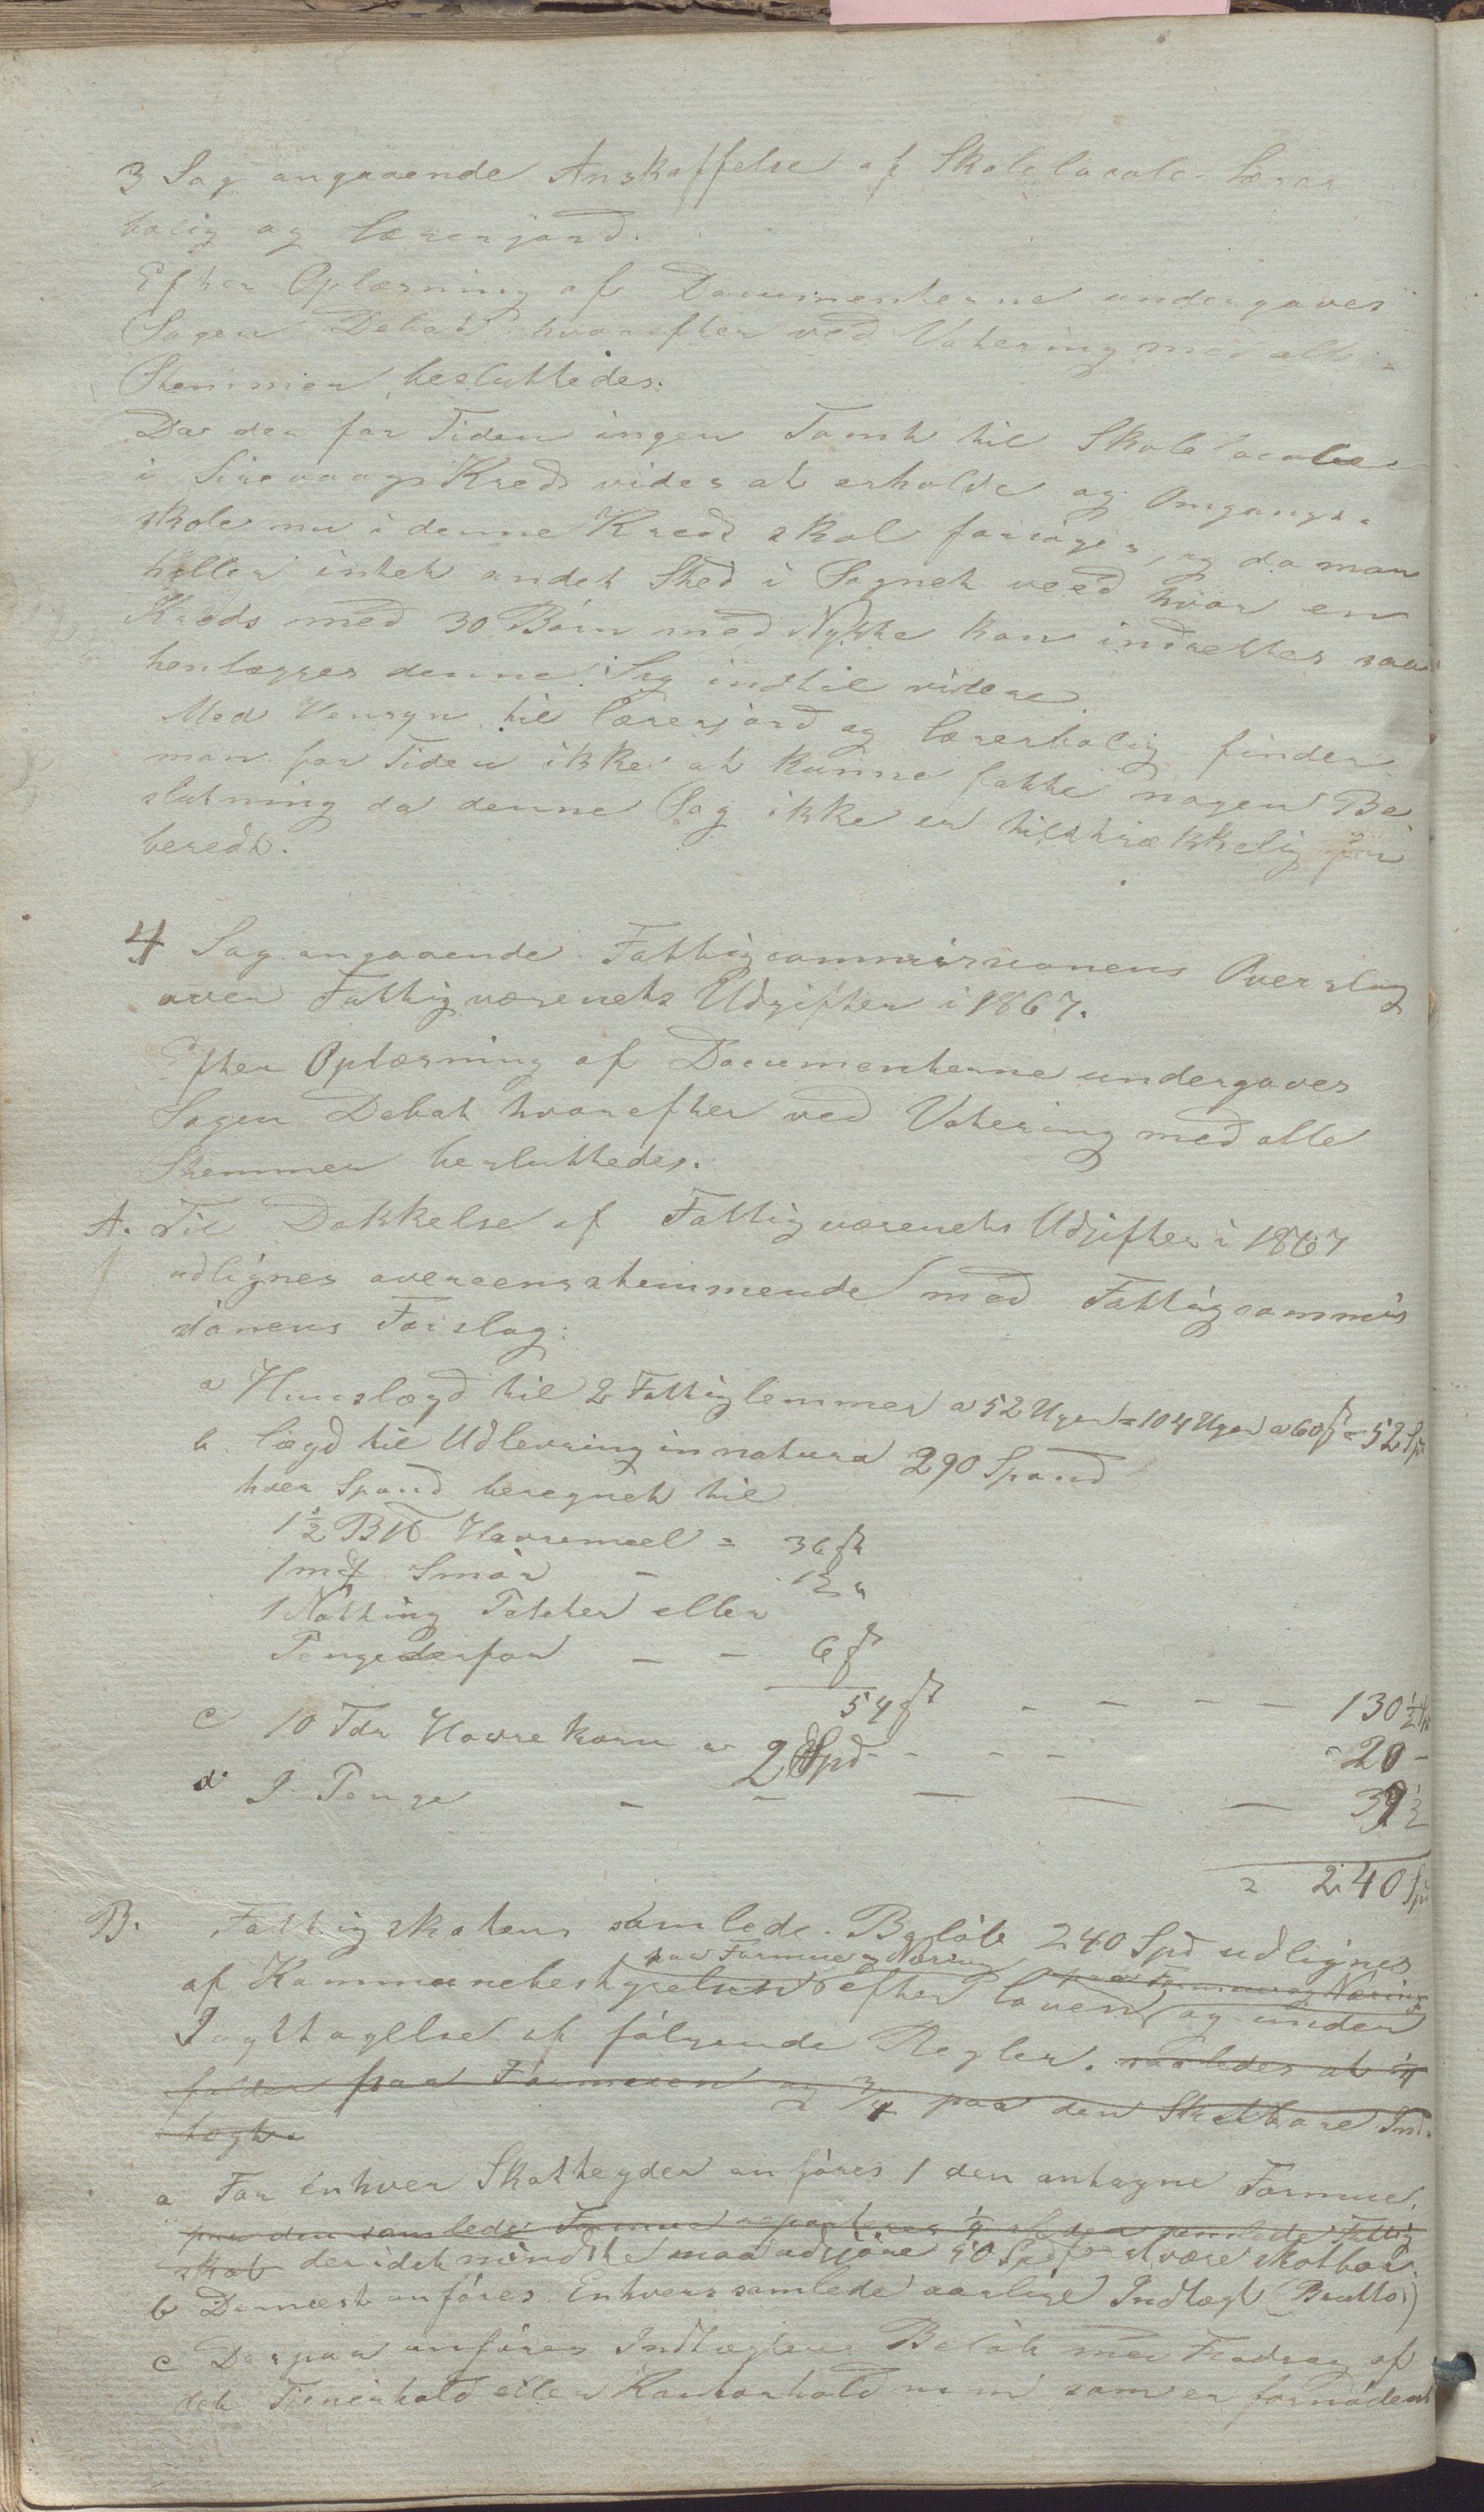 3 Sag angaaende Anskaffelse af Skolelocale Lærer
bolig og Lærerjord.
Efter Oplæsning af Documenterne undergaves
Sagen Debat hvorefter ved Votering med alle
Stemmer besluttedes.
Da der for Tiden ingen Tomt til Skolelocale
i Sirevaags Kreds vides at erholde og Omgangs-
skole nu i denne Kreds skal forsøges, og da man
heller intet andet Sted i Sognet veed hvor en
Kreds med 30 Børn med Nytte kan indrettes saa
henlægges denne Sag indtil videre.
Med Hensyn til Lærerjord og Lærerbolig finder
man for Tiden ikke at kunne fatte nogen Be
slutning da denne Sag ikke er tilstrækkelig for
beredt.
4 Sag angaaende Fattigcommissionens Overslag
over Fattigvæsenets Udgifter i 1867.
Efter Oplæsning af Documenterne undergaves
Sagen Debat hvorefter ved Votering med alle
Stemmer besluttedes.
A. Til Dækkelse af Fattigvæsenets Udgifter i 1867
udlignes overeensstemmende med Fattigcommis
sionens Forslag:
a Huuslægd til 2 Fattiglemmer a 52 Uger = 104 Uger a 60 ß = 52 Spd
b. Lægd til Udlevring in natura 290 Spand
hver Spand beregnet til
1½ B℔ Havremeel = 36 ß
1 m℔ Smør - 12 "
1 Nøtting Poteter eller
Penge derfor - - 6 ß
54 ß - - - - 130½
c 10 Tdr Havrekorn a 2 Spd - - - - 20 -
d. I Penge - - - - - 37½
= 240 Spd
B. Fattigskatens samlede Beløb 240 Spd udlignes
paa Formue og Næring
af Kommunebestyrelsen efter Loven paa Formue og Næring og under
Iagttagelse af følgende Regler. saaledes at ¼
falder paa Formuen og ¾ paa den Skatbare Ind-
tægt.
a For Enhver Skatteyder anføres 1 den antagne Formue.
paa den samlede Formue reparteres ¼ af den samlede Fattig
skat der idet mindste maa udgjøre 50 Spd for at være skatbar.
b Dernæst anføres Enhvers samlede aarlige Indtægt (Brutto)
c Derpaa anføres Indtægtens Beløb med Fradrag af
det Tienerhold eller Kontorhold m.m. som er fornødent